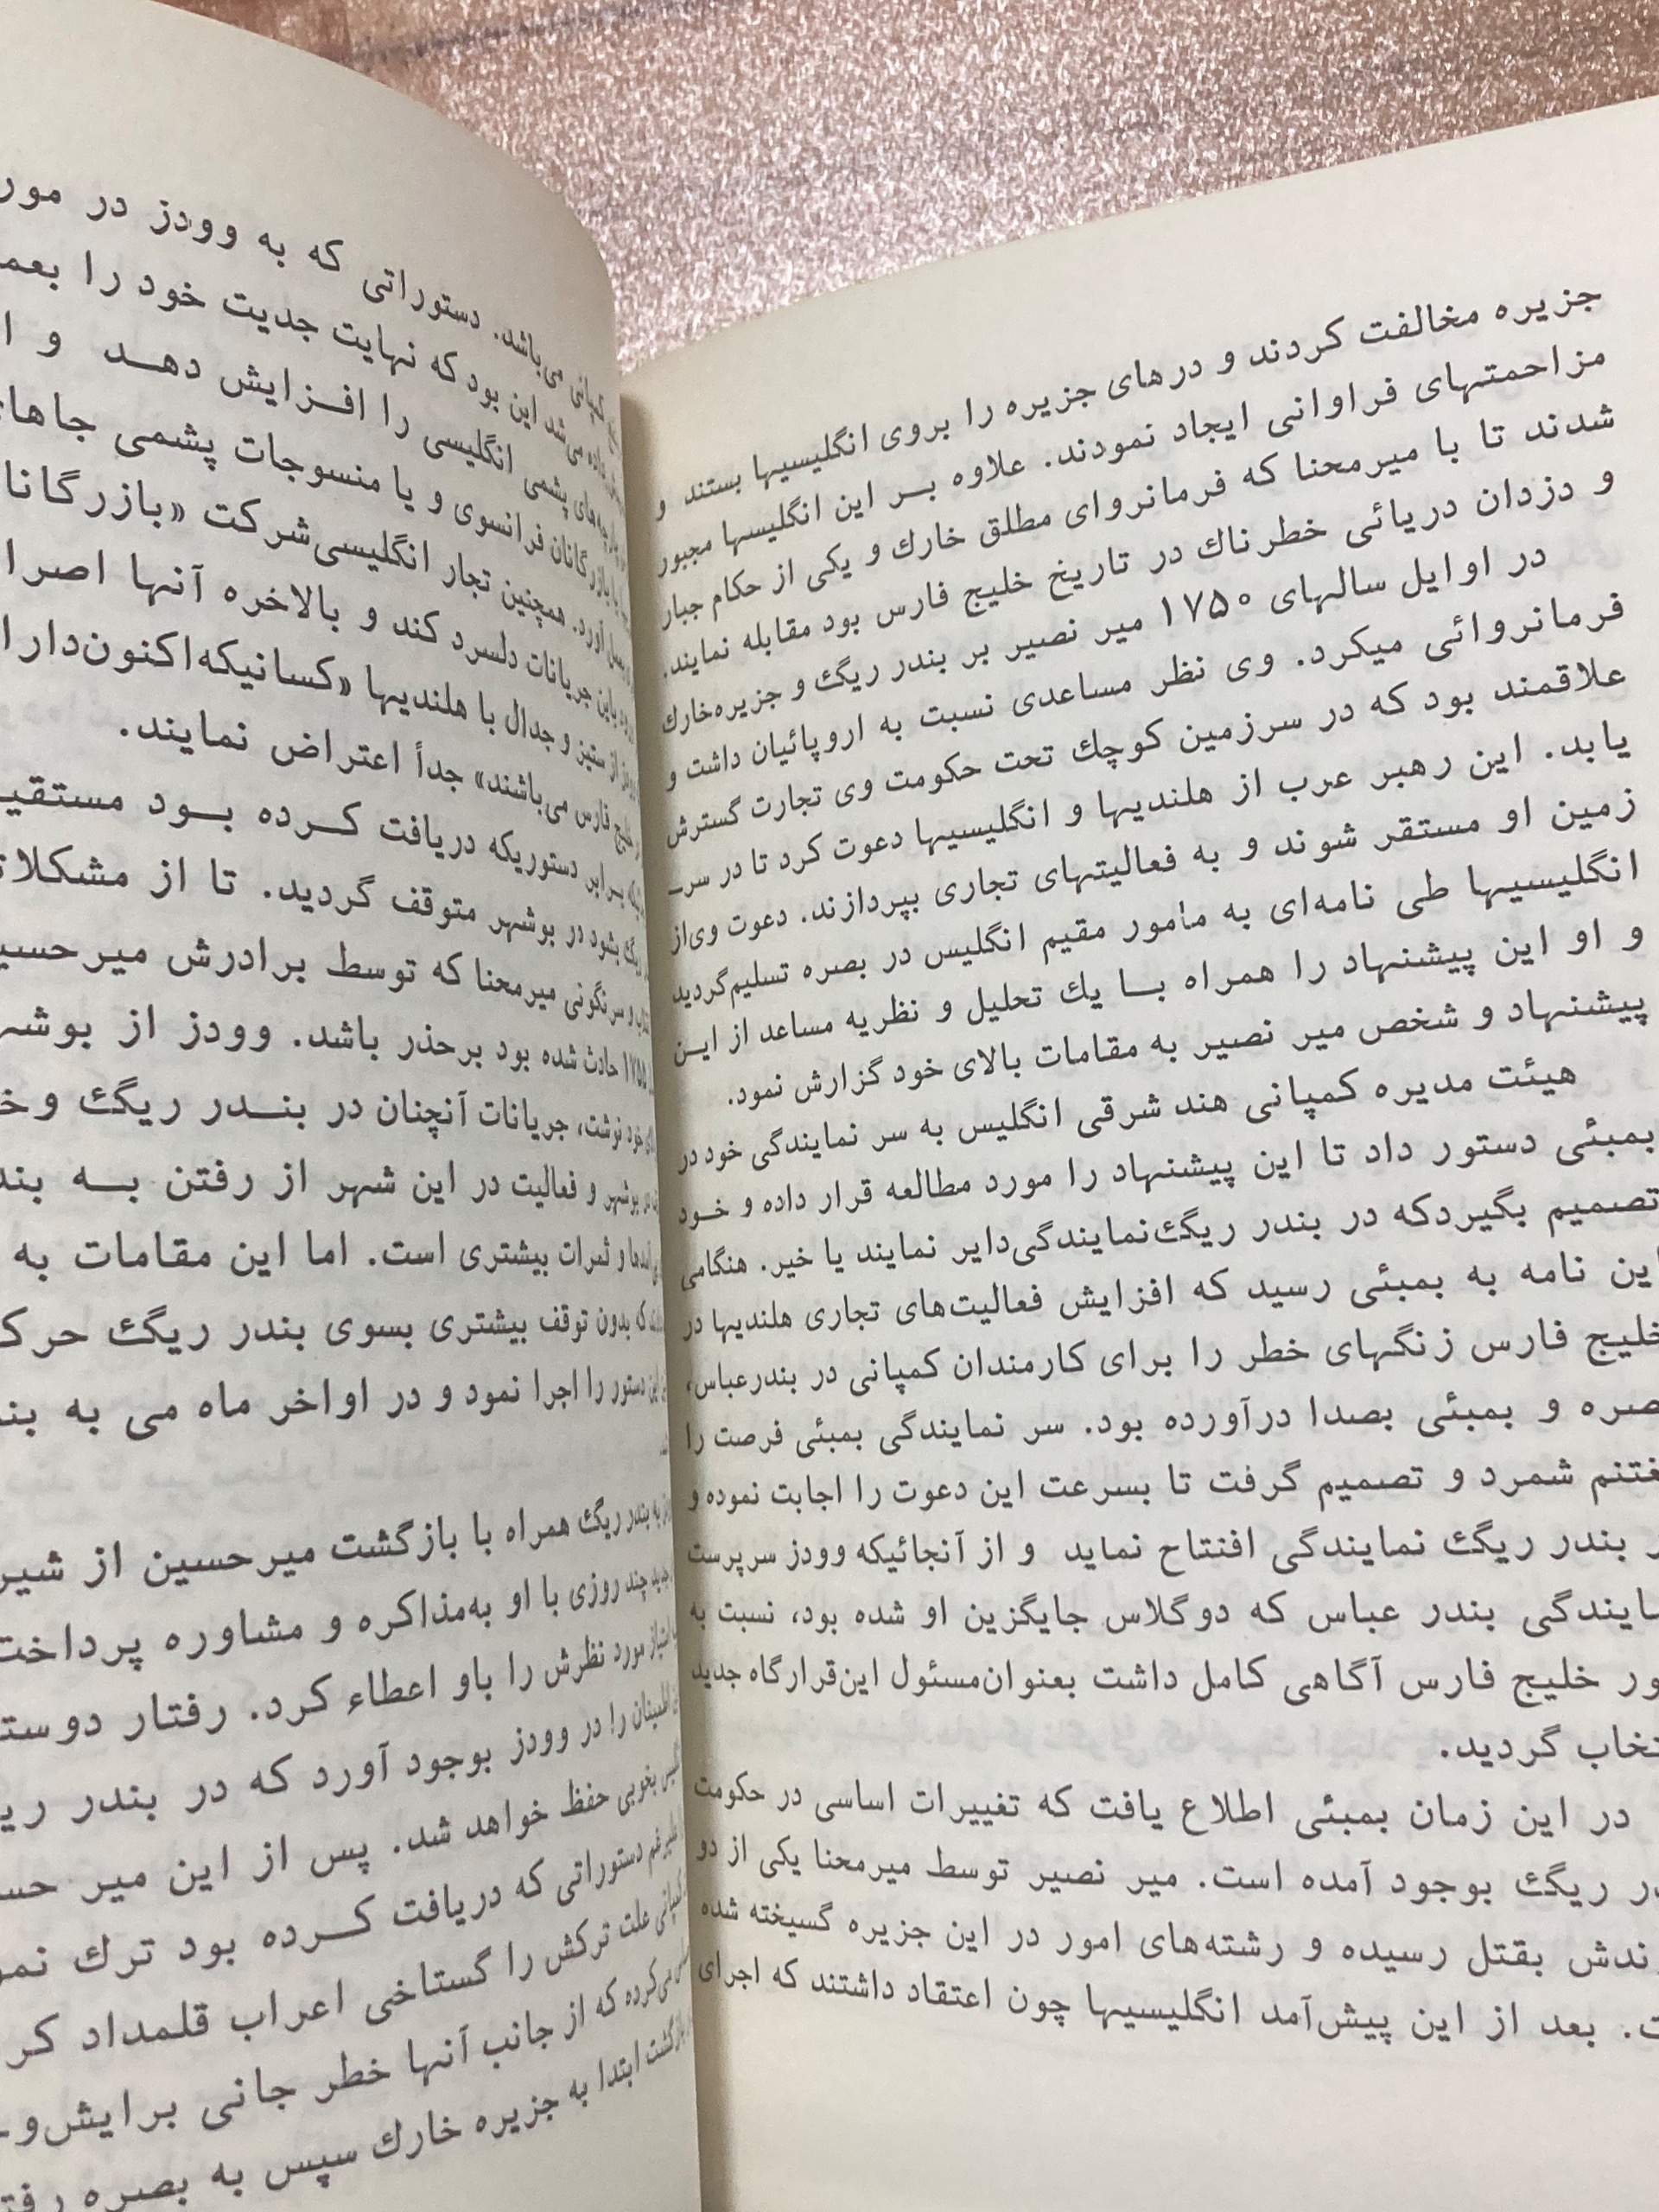 جزیره مخالفت کردند و درهای جزیره را بروی انگلیسیها بستند و
مزاحمتهای فراوانی ایجاد نمودند. علاوه بر این انگلیسها مجبور
شدند تا با میرمحنا که فرمانروای مطلق خارك و یکی از حکام جبار
و دزدان دریائی خطرناك در تاریخ خلیج فارس بود مقابله نمایند.
در اوایل سالهای ۱۷۵۰ میر نصیر بر بندر ریگ و جزیره‌خارك
فرمانروائی میکرد. وی نظر مساعدی نسبت به اروپائیان داشت و
علاقمند بود که در سرزمین کوچك تحت حکومت وی تجارت گسترش
یابد. این رهبر عرب از هلندیها و انگلیسیها دعوت کرد تا در سر-
زمین او مستقر شوند و به فعالیتهای تجاری بپردازند. دعوت وی‌از
انگلیسیها طی نامه‌ای به مأمور مقیم انگلیس در بصره تسلیم‌گردید
و او این پیشنهاد را همراه با یك تحلیل و نظریه مساعد از این
پیشنهاد و شخص میر نصیر به مقامات بالای خود گزارش نمود.
هیئت مدیره کمپانی هند شرقی انگلیس به سر نمایندگی خود در
بمبئی دستور داد تا این پیشنهاد را مورد مطالعه قرار داده و خود
تصمیم بگیردکه در بندر ریگ‌نمایندگی‌دایر نمایند یا خیر. هنگامی
این نامه به بمبئی رسید که افزایش فعالیت‌های تجاری هلندیها در
خلیج فارس زنگهای خطر را برای کارمندان کمپانی در بندرعباس،
صره و بمبئی بصدا درآورده بود. سر نمایندگی بمبئی فرصت را
غتنم شمرد و تصمیم گرفت تا بسرعت این دعوت را اجابت نموده و
ر بندر ریگ نمایندگی افتتاح نماید و از آنجائیکه وودز سرپرست
مایندگی بندر عباس که دوگلاس جایگزین او شده بود، نسبت به
ور خلیج فارس آگاهی کامل داشت بعنوان‌مسئول این‌قرارگاه جدید
تخاب گردید.
در این زمان بمبئی اطلاع یافت که تغییرات اساسی در حکومت
در ریگ بوجود آمده است. میر نصیر توسط میرمحنا یکی از دو
زندش بقتل رسیده و رشته‌های امور در این جزیره گسیخته شده
ت. بعد از این پیش‌آمد انگلیسیها چون اعتقاد داشتند که اجرای
کمپانی می‌باشد. دستوراتی که به وودز در مور
داده می‌شد این بود که نهایت جدیت خود را بعم
پارچه‌های پشمی انگلیسی را افزایش دهد و ا
بازرگانان فرانسوی و یا منسوجات پشمی جاها
آورد. همچنین تجار انگلیسی‌شرکت «بازرگانا
باین جریانات دلسرد کند و بالاخره آنها اصرا
از ستیز و جدال با هلندیها «کسانیکه‌اکنون‌دارا
خلیج فارس می‌باشند» جدأ اعتراض نمایند.
برابر دستوریکه دریافت کرده بود مستقیـ
ریگ بشود در بوشهر متوقف گردید. تا از مشکلات
و سرنگونی میرمحنا که توسط برادرش میرحسیـ
حادث شده بود برحذر باشد. وودز از بوشهـ
خود نوشت، جریانات آنچنان در بندر ریگ و خـ
بوشهر و فعالیت در این شهر از رفتن به بند
و ثمرات بیشتری است. اما این مقامات به
که بدون توقف بیشتری بسوی بندر ریگ حرک
این دستور را اجرا نمود و در اواخر ماه می به بند
به بندر ریگ همراه با بازگشت میرحسین از شیر
چند روزی با او به‌مذاکره و مشاوره پرداخت
امتیاز مورد نظرش را باو اعطاء کرد. رفتار دوستـ
اطمینان را در وودز بوجود آورد که در بندر ریـ
بخوبی حفظ خواهد شد. پس از این میر حسـ
علیرغم دستوراتی که دریافت کرده بود ترك نمو
کمپانی علت ترکش را گستاخی اعراب قلمداد کر
می‌کرده که از جانب آنها خطر جانی برایش‌و-
بازگشت ابتدا به جزیره خارك سپس به بصره رفتـ